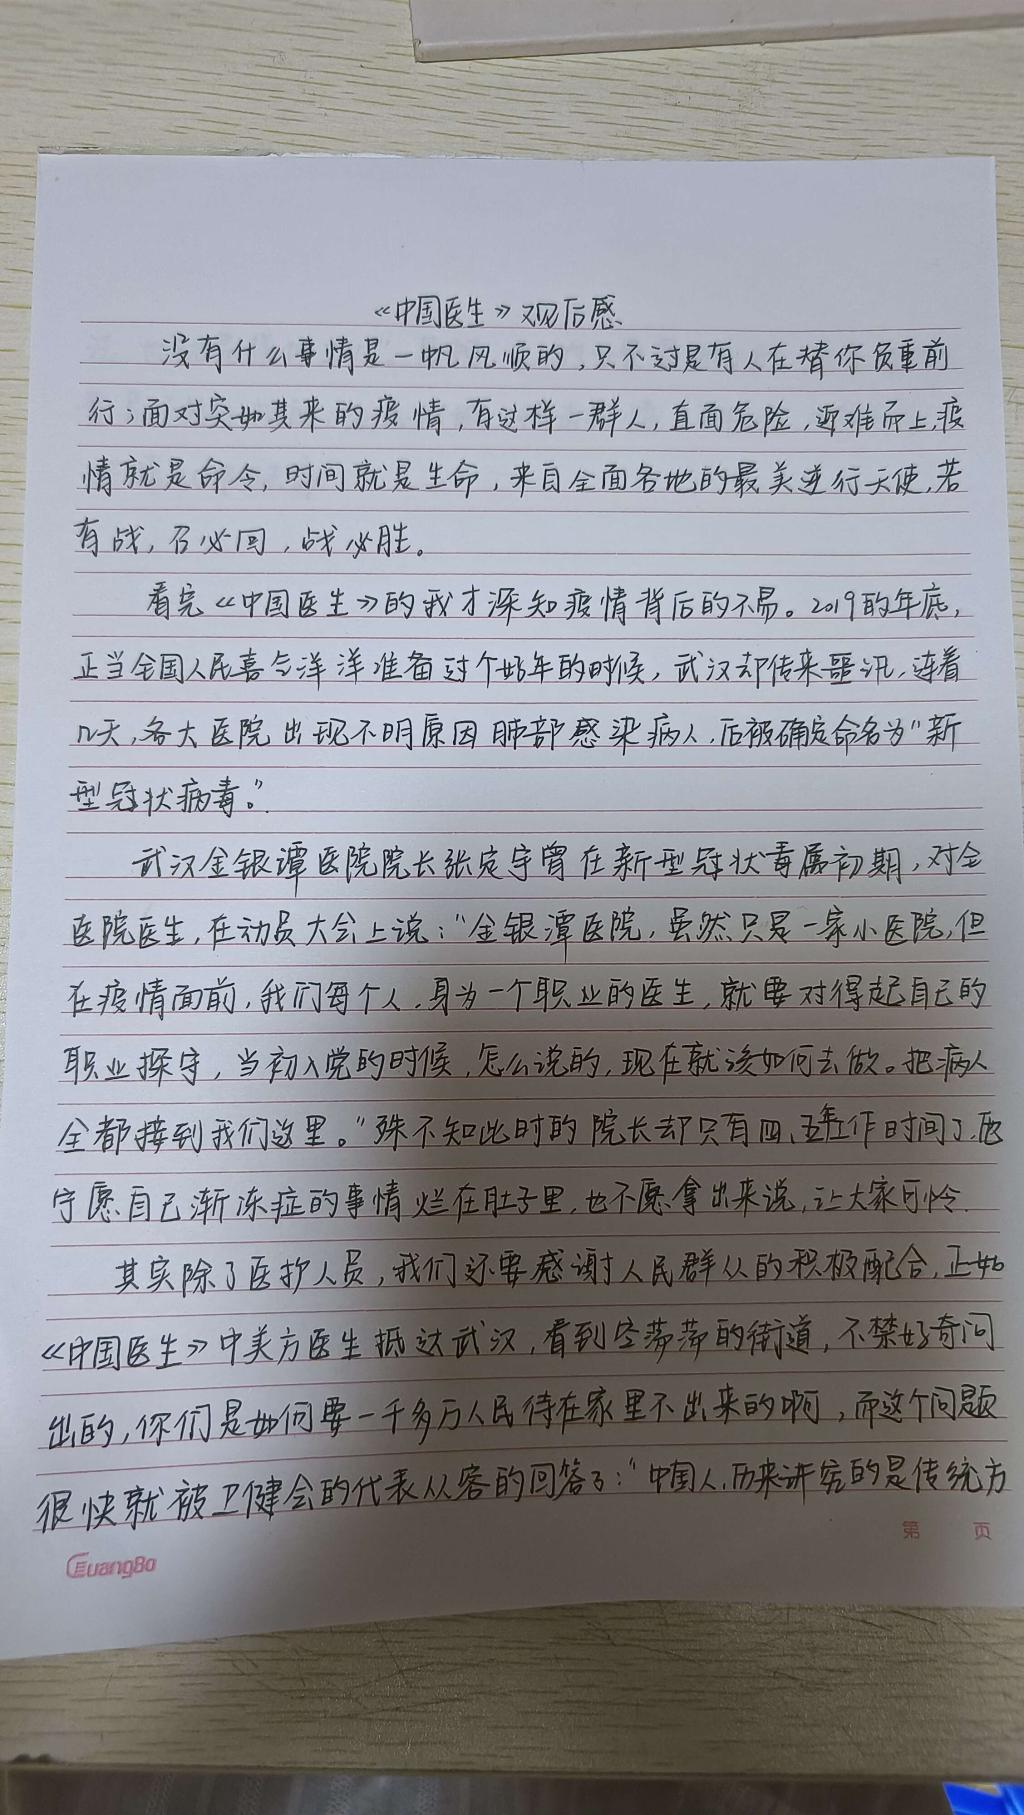 《中国医生》观后感
没有什么事情是一帆风顺的，只不过是有人在替你负重前
行；面对突如其来的疫情，有这样一群人，直面危险，迎难而上，疫
情就是命令，时间就是生命，来自全面各地的最美逆行天使，若
有战，召必回，战必胜。
看完《中国医生》的我才深知疫情背后的不易。2019的年底，
正当全国人民喜气洋洋准备过个好年的时候，武汉却传来噩讯，连着
几天，各大医院出现不明原因肺部感染病人，后被确定命名为“新
型冠状病毒。”
武汉金银潭医院院长张定宇曾在新型冠状毒属初期，对全
医院医生，在动员大会上说：“金银潭医院，虽然只是一家小医院，但
在疫情面前，我们每个人，身为一个职业的医生，就要对得起自己的
职业操守，当初入党的时候，怎么说的，现在就该如何去做。把病人
全都接到我们这里。”殊不知此时的院长却只有四、五年工作时间了，
宁愿自己渐冻症的事情烂在肚子里，也不愿拿出来说，让大家可怜.
其实除了医护人员，我们还要感谢人民群众的积极配合，正如
《中国医生》中美方医生抵达武汉，看到空荡荡的街道，不禁好奇问
出的，你们是如何要一千多万人民待在家里不出来的啊，而这个问题
很快就被卫健会的代表从容的回答了：“中国人，历来讲究的是传统方
第 页
GuangBo